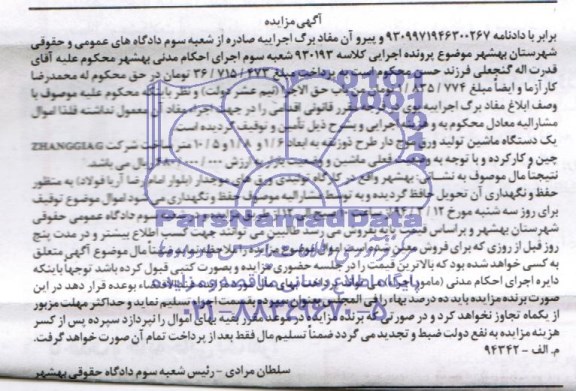 آگهی مزایده
برابر با دادنامه ۹۳۰۹۹۷۱۹۴۶۳۰۰۲۶۷ و پیرو آن مفاد برگ اجراییه صادره از شعبه سوم دادگاه های عمومی و حقوقی
شهرستان بهشهر موضوع پرونده اجرایی کلاسه ۹۳۰۱۹۳ شعبه سوم اجرای احکام مدنی بهشهر محکوم علیه آقای
قدرت اله گنجعلی فرزند حسین محکوم است به پرداخت مبلغ ۳۶/۷۱۵/۴۷۳ تومان در حق محکوم له محمدرضا
کارآزما و ایضاً مبلغ ۱/۸۳۵/۷۷۴ تومان من باب حق الاجرا (نیم عشر دولت) و نظر باینکه محکوم علیه موصوف با
وصف ابلاغ مفاد برگ اجراییه قانونی اقدامی را در جهت اجرای مفاد آن معمول نداشته فلذا اموال
مشارالیه معادل محکوم به و اجرایی و بشرح ذیل تأمین و توقیف گردیده است
یک دستگاه ماشین تولید ورق موج دار طرح ذوزنقه به ابعاد ۱/۶ و ۱/۸ و ۱۰/۵ متر ساخت شرکت ZHANGGIAG
چین و کارکرده و با توجه به وضعیت فعلی ماشین و وضعیت بازار به ارزش ریال می باشد.
نتیجتاً مال موصوف به نشانی بهشهر واقع در کارگاه تولیدی ورق های موجدار (بلوار امام رضا آریا فولاد) به منظور
حفظ و نگهداری آن تحویل حافظ گردیده و توسط مشارالیه موصوف حفظ و نگهداری می شود اموال موضوع توقیف
برای روز سه شنبه مورخ سوم دادگاه عمومی حقوقی
شهرستان بهشهر و براساس قیمت پایه بفروش می طالبین می توانند جهت کسب اطلاع بیشتر و در مدت پنج
روز قبل از روزی که برای فروش معین شده است اموال موضوع مزایده را ملاحظه نمایند ضمناً مال موضوع آگهی متعلق
به کسی خواهد شد بود که بالاترین قیمت را در جلسه حضوری مزایده و بصورت کتبی قبول کرده باشد توجهاً باینکه
دایره اجرای احکام مدنی (مامور اجرا) بوعده قرار دهد در این
صورت برنده مزایده باید ده درصد بهاء را فی المجلس بعنوان سپرده بقسمت اجراء تسلیم نماید و حداکثر مهلت مزبور
از یکماه تجاوز نخواهد کرد و در صورتی که برنده مزایده در موعد مقرر بقیه بهای اموال را نپردازد سپرده پس از کسر
هزینه مزایده به نفع دولت ضبط و تجدید می گردد ضمناً تسلیم مال فقط بعد از پرداخت تمام آن صورت خواهد گرفت.
م. الف - ۹۴۳۴۲
سلطان مرادی - رئیس شعبه سوم دادگاه حقوقی بهشهر
ParsNamadData
۰۲۱-۸۸۳۴۹۶۷۰-۵